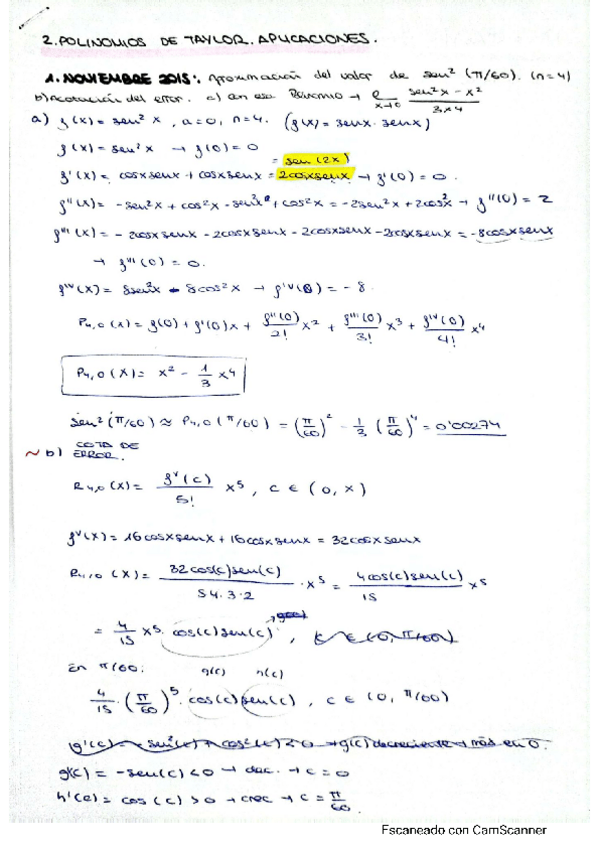 2. POLINOMIOS DE TAYLOR. APLICACIONES.
1. NOVIEMBRE 2015: Aproximación del valor de sen² (π/60). (n=4)
b) Acotación del error. c) en ese Binomio → ℓ x→0 sen²x - x² / 3x4
a) f(x) = sen² x, a=0, n=4. (f(x) = senx·senx)
f(x) = sen²x → f(0) = 0
= sen(2x)
f'(x) = cosxsenx + cosxsenx = 2cosxsenx → f'(0) = 0.
f''(x) = -sen²x + cos²x - sen²x + cos²x = -2sen²x + 2cos²x → f''(0) = 2
f'''(x) = -2cosxsenx - 2cosxsenx - 2cosxsenx - 2cosxsenx = -8cosxsenx
→ f'''(0) = 0.
f^IV(x) = 8sen²x - 8cos²x → f^IV(0) = -8
P4,0(x) = f(0) + f'(0)x + f''(0)/2! x² + f'''(0)/3! x³ + f^IV(0)/4! x⁴
P4,0(x) = x² - 1/3 x⁴
sen²(π/60) ≈ P4,0(π/60) = (π/60)² - 1/3 (π/60)⁴ = 0'00274
~ b) COTA DE ERROR.
R4,0(x) = f^V(c)/5! x⁵, c ∈ (0, x)
f^V(x) = 16cosxsenx + 16cosxsenx = 32cosxsenx
R4,0(x) = 32cos(c)sen(c) / 5·4·3·2 · x⁵ = 4cos(c)sen(c)/15 x⁵
= 4/15 x⁵ · cos(c)sen(c),
En π/60: g(c) h(c)
4/15 · (π/60)⁵ · cos(c)sen(c), c ∈ (0, π/60)
g'(c) = -sen(c) < 0 → dec. → c = 0
h'(c) = cos(c) > 0 → crec → c = π/60
Escaneado con CamScanner